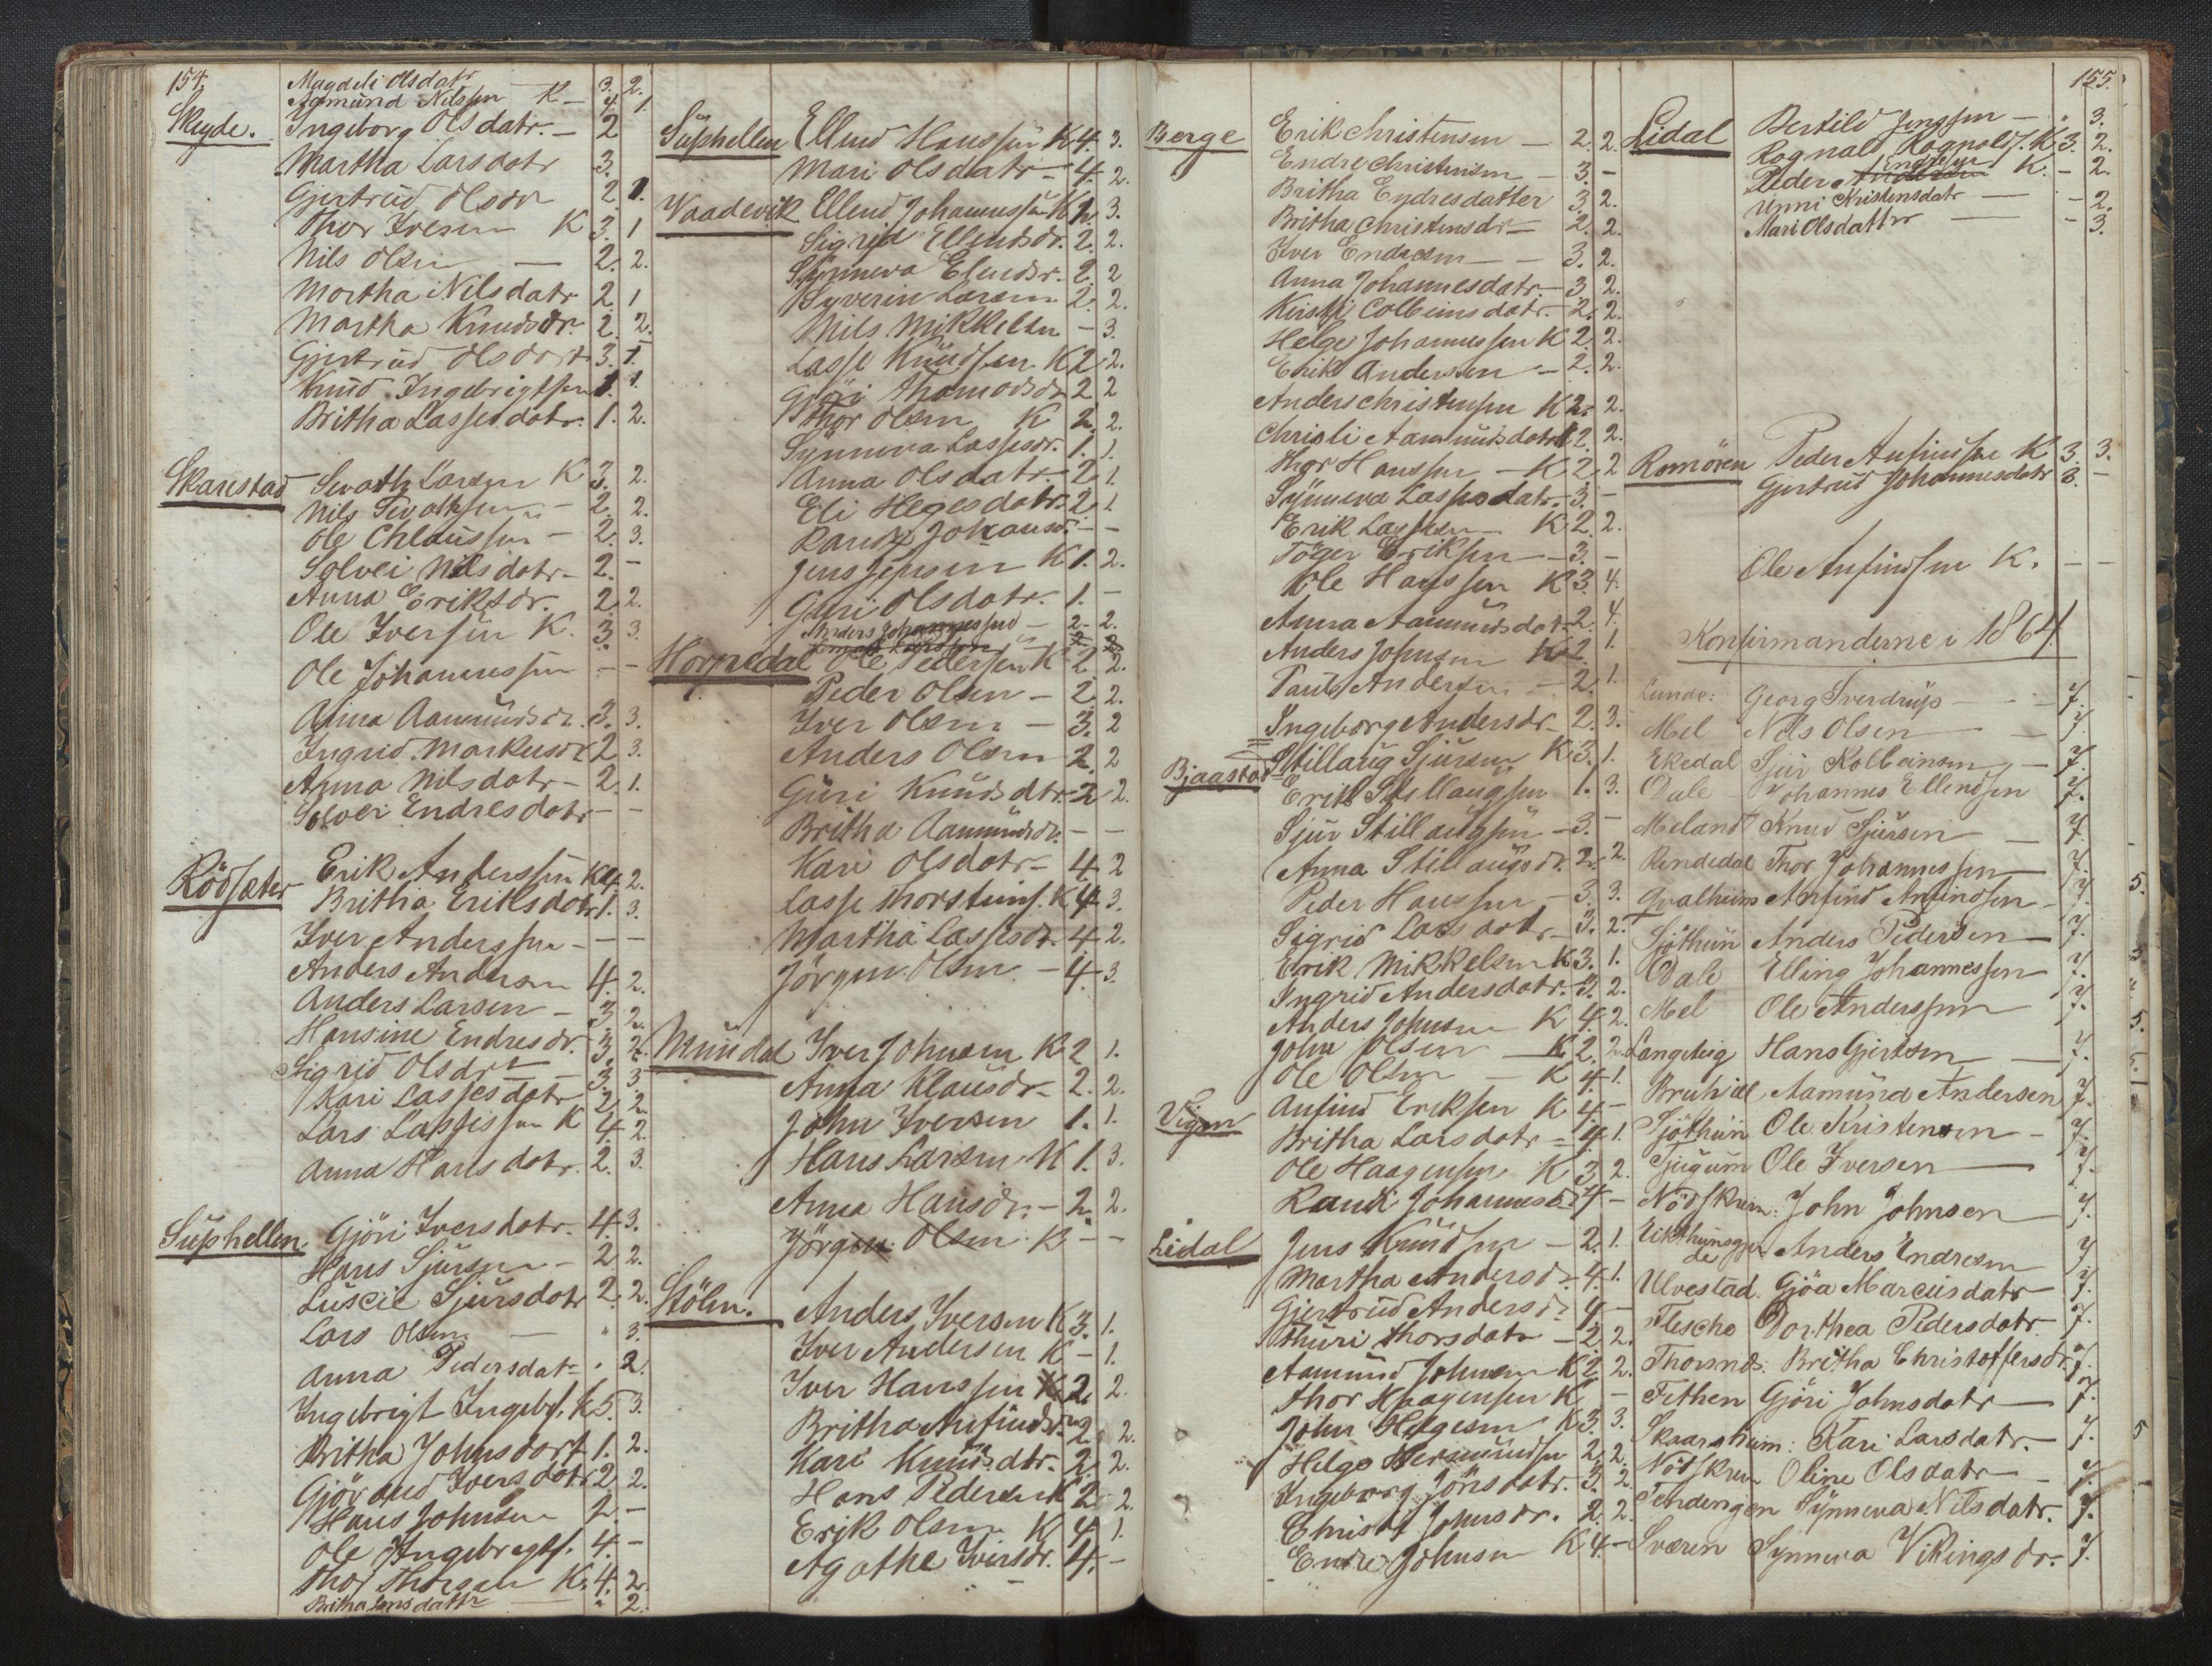 154.
Magdeli Olsdatr 3. 2.
Aamund Nilssen K - 4. 1.
Skeyde. Ingeborg Olsdatr. - 2
Martha Larsdatr 3.
Gjertrud Olsdr 2 1.
Thor Iversen K 3. 1
Nils Olsen - 2. 2.
Martha Nilsdatr 2. 1
Martha Knudsdr. 2. 2.
Gjertrud Olsdatr 3. 1.
Knud Ingebrigtsen 1. 1.
Britha Lassesdatr. 1. 2.
Skarestad Sivath Larsen K 3. 2.
Nils Sivathsen - 2. 2.
Ole Chlaussen - 2. 3.
Solvei Nilsdatr - 2. -
Anna Eriksdr. 2. 2.
Ole Iversen K. 3. 3.
Ole Johannessen - -
Anna Aamundsdr. 3. 3.
Ingrid Markusdr 2 3.
Anna Nilsdatr - 2. 1.
Solvei Endresdatr - -
Rödsæter Erik Anderssen K 4. 2.
Britha Eriksdatr 1. 3.
Iver Anderssen - - -
Anders Andersen 4. 2.
Anders Larsen - 3. 2.
Hansine Endresdr. 3. 2.
Sigrid Olsdr - 3. 3
Kari Lassesdatr 2. 2.
Lars Lassessen K 4. 2.
Anna Hansdatr. 2. 3.
Suphellen Gjöri Iversdatr. 4. 3.
Hans Sjursen - 2. 2.
Luscie Sjursdatr 2. 2.
Lars Olsen - " 3.
Anna Pedersdatr " 2.
Ingebrigt Ingebr. K 5. 3.
Britha Johnsdatr 1. 2.
Gjörand Iversdatr 2. 2.
Hans Johnsen 2. -
Ole Ingebrigts. 4. -
Thor Thorsen K. 4. 2.
Britha Jensdattr " 2.
Suphellen Ellend Hanssen K 4. 3.
Mari Olsdatr - 4. 2.
Vaadevik Ellend Johannessen K 2. 3.
Sigrid Ellendsdr. 2. 2.
Synneva Elendsdr. 2. 2
Syverin Larsen 2. 2.
Nils Mikkelsen - 3.
Lasse Knudsen K 2 2.
Gjöri Thomasdr 2 2
Thor Olsen K 2. 2.
Synneva Lassesdr. 1. 1.
Anna Olsdatr. 2. 1.
Eli Hegesdatr. 2. 1
Randi Johansdr. - -
Jens Jensen K 1. 2.
Guri Olsdatr. 1. -
Anders Johannessen - 2. 2.
Horpedal Ole Pedersen K 2. 2.
Peder Olsen - 2. 2.
Iver Olsen - 3. 2
Anders Olsen 2. 2
Guri Knudsdtr. 2 2.
Britha Aamundsdr. - -
Kari Olsdatr - 4. 2
Lasse Thorsteins. K 4. 3.
Martha Lassesdr. 4. 2.
Jörgen Olsen - 4. 3.
Mundal Iver Johnsen K 2 1.
Anna Klausdr. 2. 2.
John Iversen 1. 1.
Hans Larsen K 1. 3.
Anna Hansdr. - 2. 2.
Jörgen Olsen. K - -
Stölen. Anders Iversen K 3. 1.
Iver Andersen K - 1.
Iver Hanssen K 2. 2.
Britha Anfindsdr 2. 2.
Kari Knudsdtr. 2. 2.
Hans Pedersen K 2. 2
Erik Olsen K 4. 1.
Agathe Iversdr. 4. -
155.
Berge Erik Christensen - 2. 2.
Endre Christensen - 3. -
Britha Endresdatter 3. 2.
Britha Christensdr - 2. 2.
Iver Endresen - - 3. 2.
Anna Johannesdatr. - 3 2.
Kirsti Colbeinsdatr. - 2. 2.
Helge Johannessen K 2. 2.
Erik Andersen - 2. 2.
Anders Christensen K 2. 2.
Christi Aamundsdatr 2. 2.
Thor Hanssen - K 2. 2
Synneva Lassesdatr. - 3. -
Erik Lassesen K 2. 2.
Töger Eriksen - 3. -
Ole Hanssen K 3. 4.
Anna Aamundsdatr 2. 4.
Anders Johnsen K 2. 1.
Paul Andersen - 2. 1.
Ingeborg Andersdr. 2. 3.
Bjaastad Stillaug Sjursen K 3. 1.
Erik Stillaugsen 1. 3.
Sjur Stillaugsen - 3. -
Anna Stillaugsdr. 2. 2.
Peder Hanssen - 3. 3.
Sigrid Larsdatr - 3. 2.
Erik Mikkelsen K 3. 1.
Ingrid Andersdatr. - 3. 2.
Anders Johnsen K 4. 2.
John Olsen - K 2. 2.
Ole Olsen - K 4. 1.
Vigen Anfind Eriksen K 4. -
Britha Larsdatr - 4. 1.
Ole Haagensen K 3. 2.
Randi Johannesd. 4 -
Lidal Jens Knudsen - 2. 1.
Martha Andersd. 4. 1.
Gjertrud Andersdr 4 -
Thuri Thorsdatr - 2. 2.
Aamund Johnsen K 2. 2.
Thor Haagensen K -
John Helgesen K 3. 3.
Helge Hermundsen 2. 2.
Ingeborg Jönsdatr. 3. 2
Christi Johnsdr. 2. 2.
Endre Johnsen K 4. -
Lidal Bertild Jenssen - " 3.
Rognald Rognolds. K 3. 2.
Peder Endresen K. - 2.
Unni Kristensdatr - - 2.
Mari Olsdattr - - 3.
Romören Peder Anfindsen K 3. 3.
Gjertrud Johannesdatr 3. -
Ole Anfindsen K. - -
Konfirmanderne i 1864.
Lunde: Georg Sverdrup - - 7.
Mel Nils Olsen - 7.
Ekedal Sjur Kolbeinsen - 7.
Dale Johannes Ellendsen 7.
Meland Knud Sjursen - 7.
Rendedal Thor Johannessen 7.
Qvalheim Anfind Anfindsen - 7.
Sjöthun Anders Pedersen - 7.
Dale Elling Johannessen 7.
Mel Ole Anderssen 7.
Langeteig Hans Gjertsen - 7.
Bruhjell Aamund Andersen 7.
Sjöthun Ole Kristensen - 7.
Tjugum Ole Iversen - 7.
Nödskrem: John Johnsen 7.
Eikthunsgjer-
de Anders Endresen 7.
Ulvestad. Gjöa Marcusdatr 7.
Flesche Dorthea Pedersdatr 7.
Thorsnds: Britha Christoffersdr. 7.
Fethen Gjöri Johnsdatr - 7.
Skaarsheim: Kari Larsdatr. - 7.
Nödskrem Oline Olsdatr - 7.
Tendengen Synneva Nilsdatr. 7.
Sværen Synneva Vikingsdr. - 7.